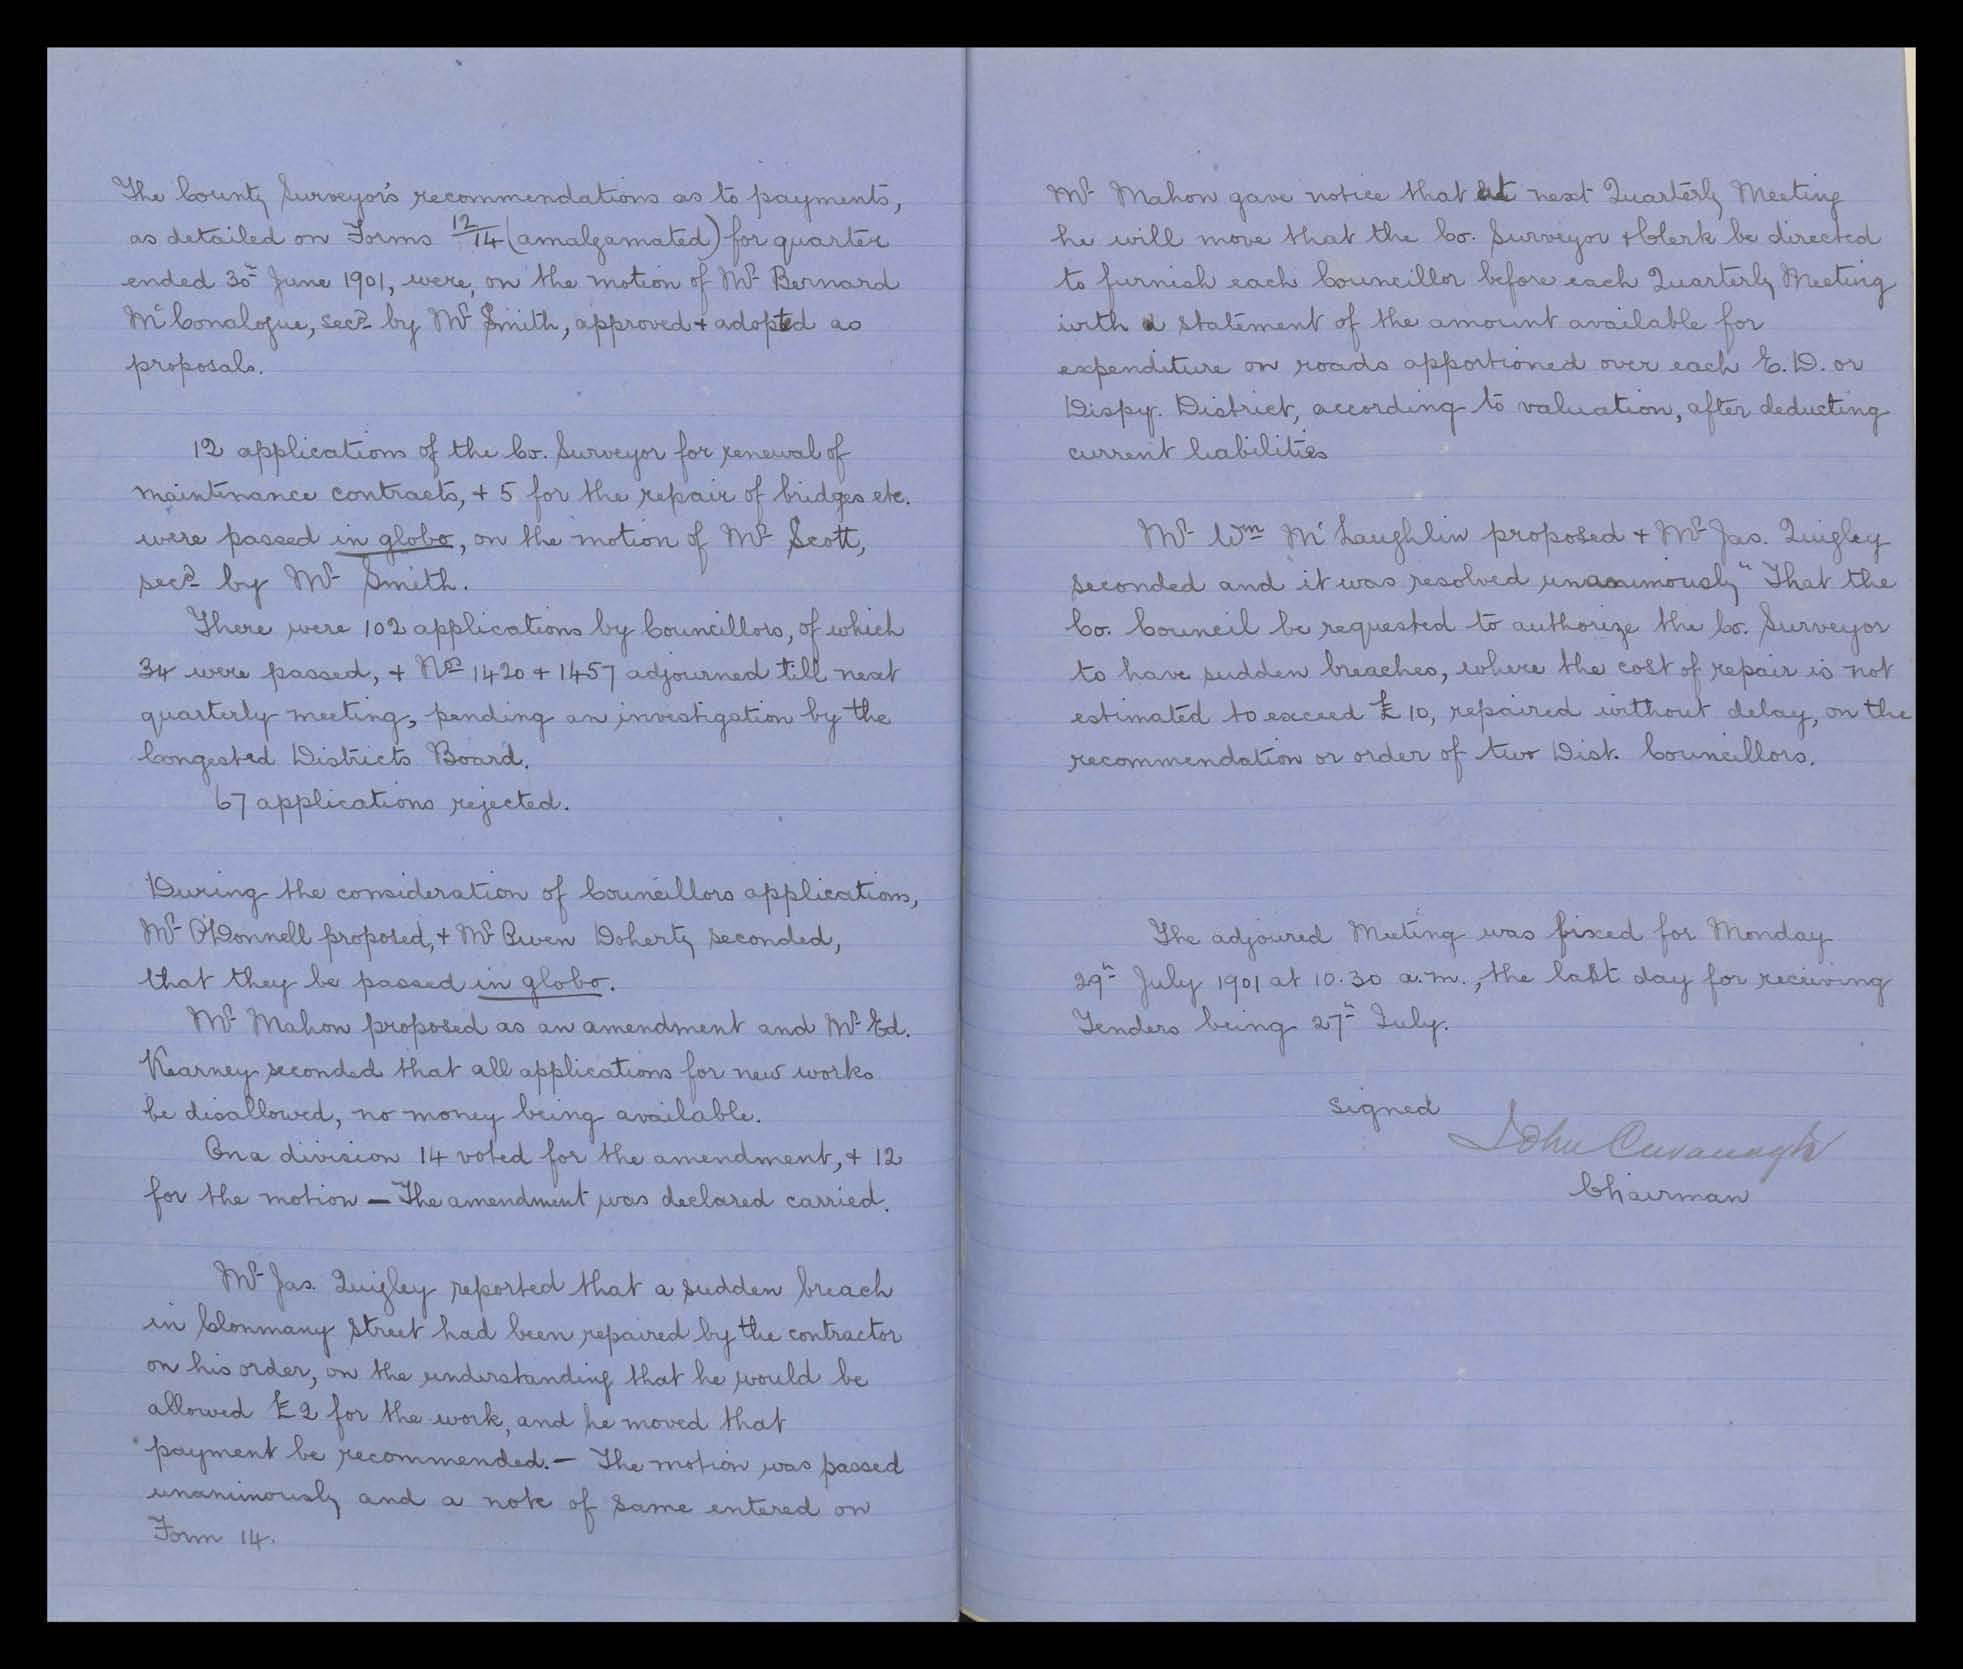 The County Surveyor's recommendations as to payments,
as detailed on Forms 12/14 (amalgamated) for quarter
ended 30th June 1901, were, on the motion of Mr Bernard
McConalogue, secd by Mr Smith, approved + adopted as
proposals.
12 applications of the Co. Surveyor for renewal of
maintenance contracts, + 5 for the repair of bridges etc.
were passed in globo, on the motion of Mr Scott,
secd by Mr Smith.
There were 102 applications by Councillors, of which
34 were passed, + Nos 1420 + 1457 adjourned till next
quarterly meeting, pending an investigation by the
Congested Districts Board.
67 applications rejected.
During the consideration of Councillors applications,
Mr O'Donnell proposed, + Mr Owen Doherty seconded,
that they be passed in globo.
Mr Mahon proposed as an amendment and Mr Ed.
Kearney seconded that all applications for new works
be disallowed, no money being available.
On a division 14 voted for the amendment, + 12
for the motion — The amendment was declared carried.
Mr Jas. Quigley reported that a sudden breach
in Clonmany Street had been repaired by the contractor
on his order, on the understanding that he would be
allowed £2 for the work, and he moved that
payment be recommended. — The motion was passed
unanimously and a note of same entered on
Form 14.
Mr Mahon gave notice that at next Quarterly Meeting
he will move that the Co. Surveyor + Clerk be directed
to furnish each Councillor before each Quarterly Meeting
with a statement of the amount available for
expenditure on roads apportioned over each E.D. or
Dispy. District, according to valuation, after deducting
current liabilities
Mr Wm McLaughlin proposed + Mr Jas. Quigley
seconded and it was resolved unanimously "That the
Co. Council be requested to authorize the Co. Surveyor
to have sudden breaches, where the cost of repair is not
estimated to exceed £10, repaired without delay, on the
recommendation or order of two Dist. Councillors.
The adjoured Meeting was fixed for Monday
29th July 1901 at 10.30 a.m., the last day for receiving
Tenders being 27th July.
Signed
John Cavanagh
Chairman